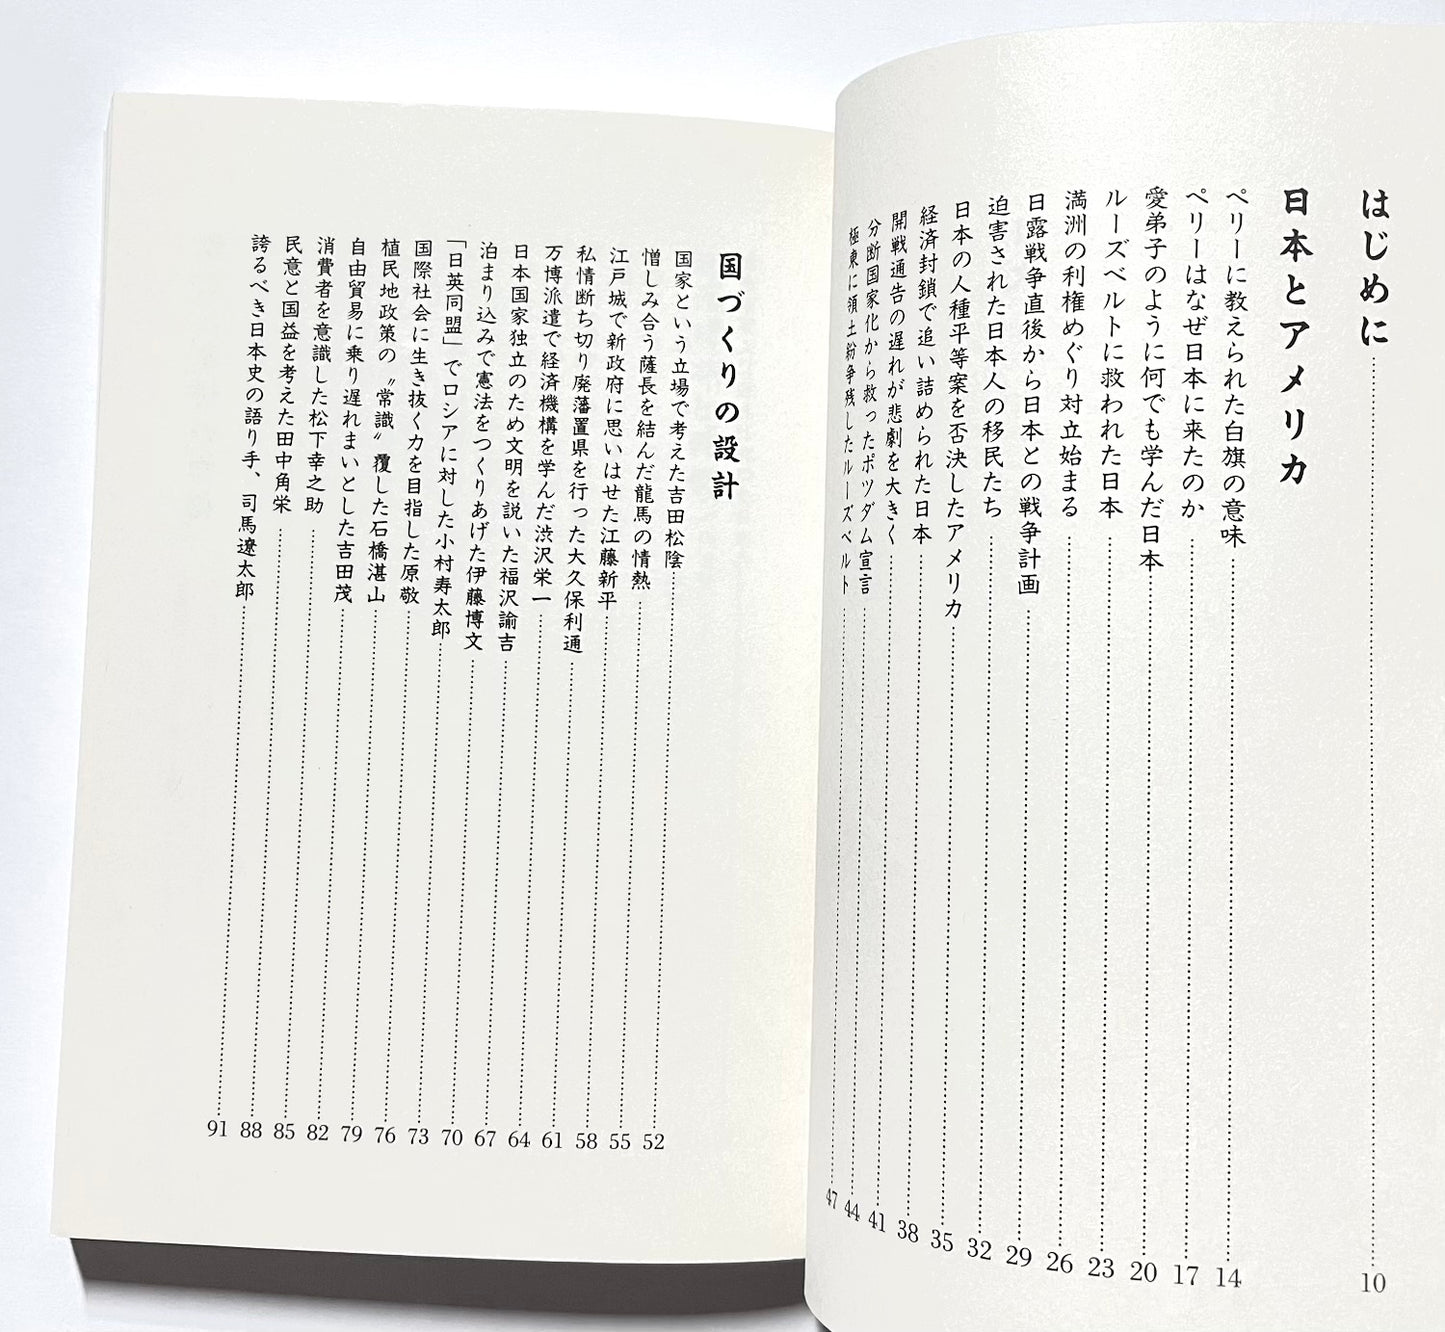 はじめに……10
日本とアメリカ
ペリーに教えられた白旗の意味……14
ペリーはなぜ日本に来たのか……17
愛弟子のように何でも学んだ日本……20
ルーズベルトに救われた日本……23
満洲の利権めぐり対立始まる……26
日露戦争直後から日本との戦争計画……29
迫害された日本人の移民たち……32
日本の人種平等案を否決したアメリカ……35
経済封鎖で追い詰められた日本……38
開戦通告の遅れが悲劇を大きく……41
分断国家化から救ったポツダム宣言……44
極東に領土紛争残したルーズベルト……47
国づくりの設計
国家という立場で考えた吉田松陰……52
憎しみ合う薩長を結んだ龍馬の情熱……55
江戸城で新政府に思いはせた江藤新平……58
私情断ち切り廃藩置県を行った大久保利通……61
万博派遣で経済機構を学んだ渋沢栄一……64
日本国家独立のため文明を説いた福沢諭吉……67
泊まり込みで憲法をつくりあげた伊藤博文……70
「日英同盟」でロシアに対した小村寿太郎……73
国際社会に生き抜く力を目指した原敬……76
植民地政策の〝常識〟覆した石橋湛山……79
自由貿易に乗り遅れまいとした吉田茂……82
消費者を意識した松下幸之助……85
民意と国益を考えた田中角栄……88
誇るべき日本史の語り手、司馬遼太郎……91